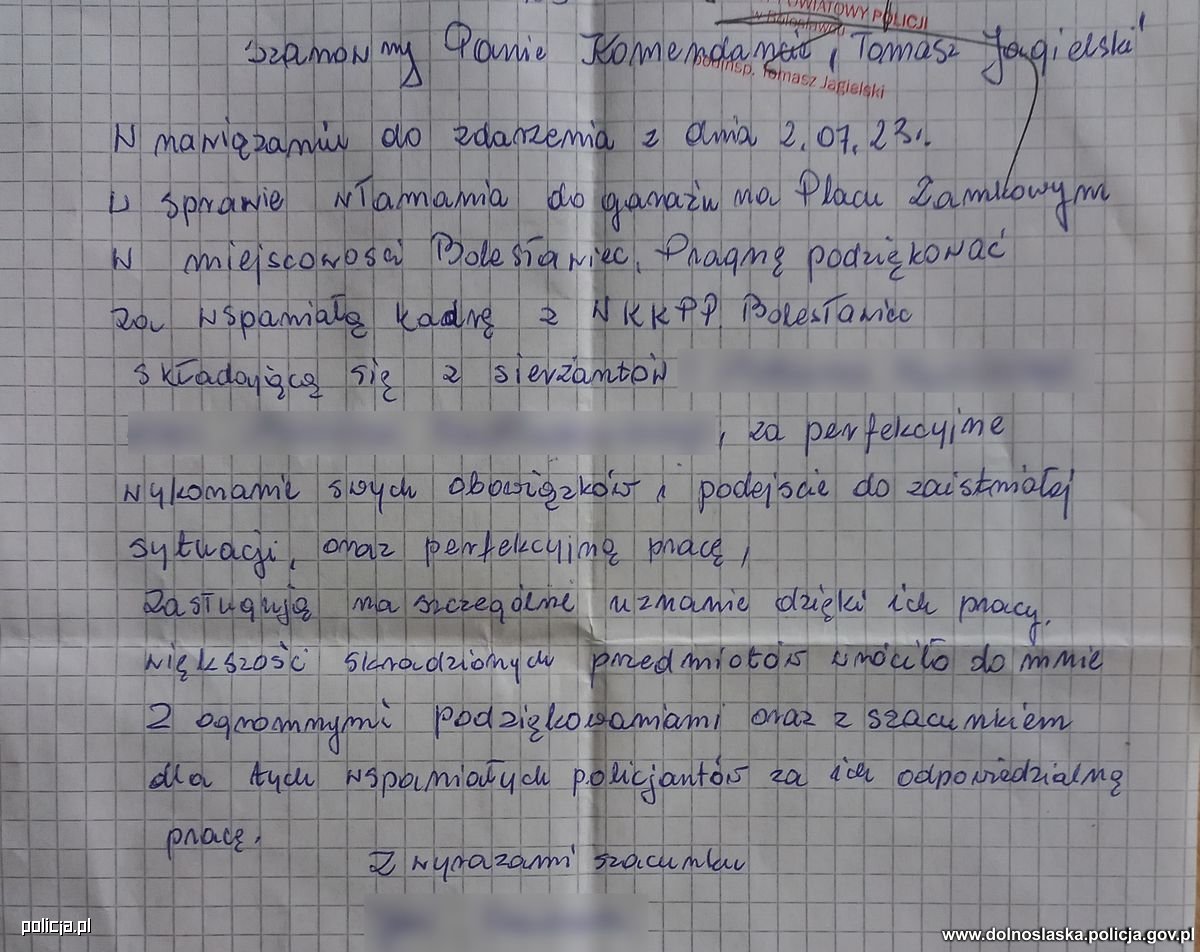 POWIATOWY POLICJI
w Bolesławcu
Szanowny Panie Komendancie, Tomasz Jagielski
podinsp. Tomasz Jagielski
W nawiązaniu do zdarzenia z dnia 2.07.23r.
w sprawie włamania do garażu na Placu Zamkowym
w miejscowości Bolesławiec. Pragnę podziękować
za wspaniałą kadrę z WKKPP Bolesławiec
składającą się z sierżantów
, za perfekcyjne
wykonanie swych obowiązków i podejście do zaistniałej
sytuacji, oraz perfekcyjną pracę,
Zasługują na szczególne uznanie dzięki ich pracy.
większość skradzionych przedmiotów wróciło do mnie
Z ogromnymi podziękowaniami oraz z szacunkiem
dla tych wspaniałych policjantów za ich odpowiedzialną
pracę.
Z wyrazami szacunku
policja.pl
www.dolnoslaska.policja.gov.pl